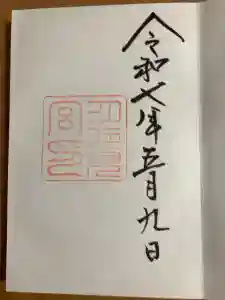 令和七年五月九日